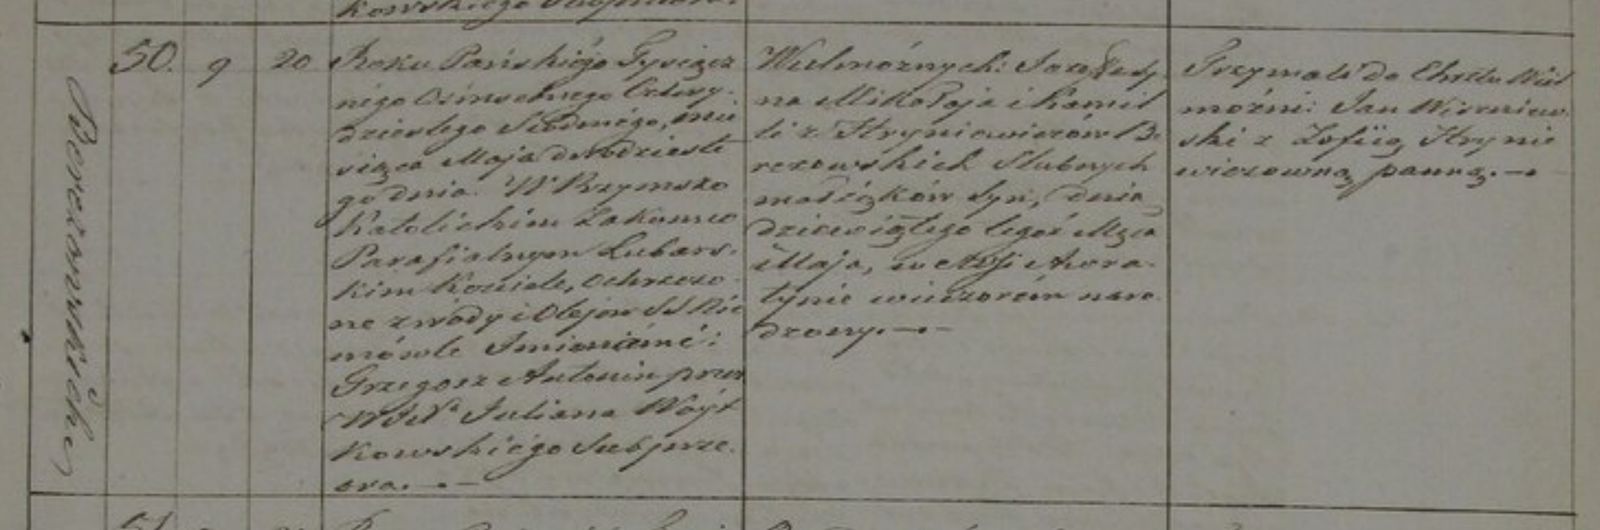 kowskiego Subprzeora.
Berezowskich
50. 9 20
Roku Pańskiégo Tysiącz
négo Ośmsetnego Cztery-
dziestego Siódmégo, mie
siąca Maja dwódzieste
go dnia. W Rzymsko
Katolickim Zakonno
Parafialnym Lubars-
kim Kościele, ochrzczo
no z wody i Olejów SS Nie
mówle Imionámi:
Grzegorz Antonin przez
Juliana Woyt
kowskiégo Subprze-
ora. —
Wielmożnych: Jozefa Sy-
na Mikołaja i Kamil
li z Hryniewiczów Be
rezowskich Slubnych
małżąków Syn, dnia
dziewiątego tegoż Mca
Maja, we Wsi
tynie wieczorem naro-
dzony. —
Trzymali do Chrztu Wiel
możni: Jan Wiszniew-
ski z Zofiią Hrynie
wiczowną panną. —
51.